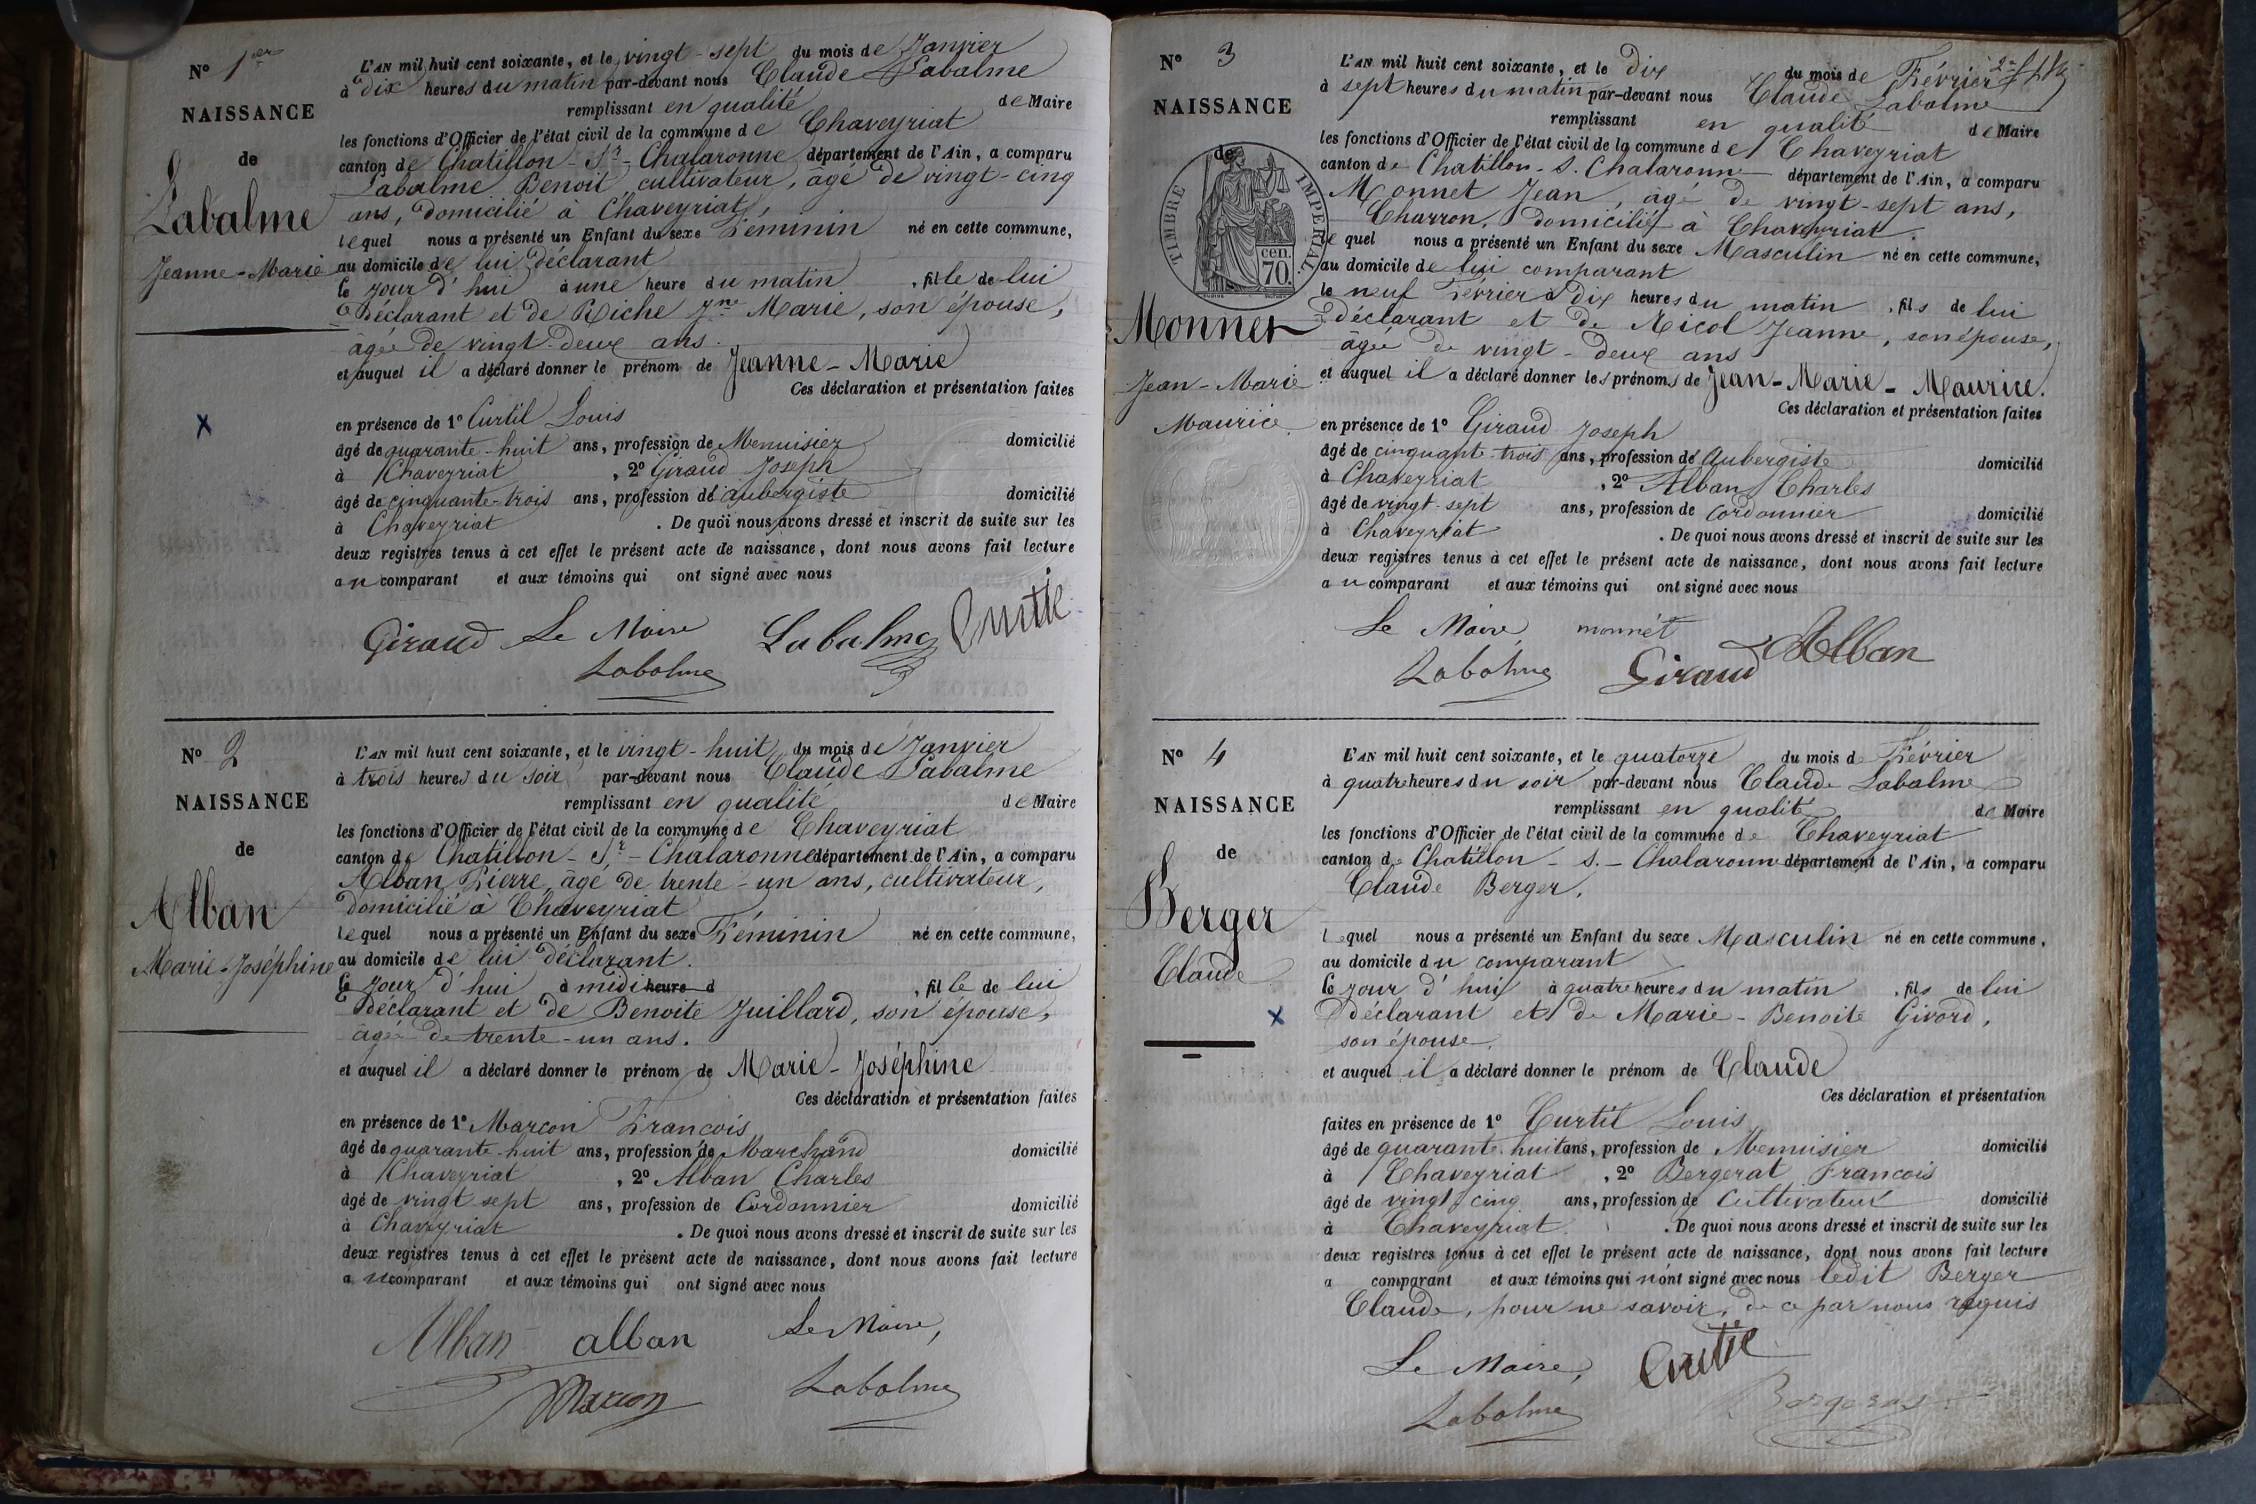 N° 1er
NAISSANCE
de
Labalme
Jeanne-Marie
L'AN mil huit cent soixante, et le vingt-sept du mois de Janvier
à dix heures du matin par-devant nous Claude Labalme
remplissant en qualité de Maire
les fonctions d'Officier de l'état civil de la commune de Chaveyriat
canton de Chatillon-Sr-Chalaronne département de l'Ain, a comparu
Labalme Benoit, cultivateur, âgé de vingt-cinq
ans, domicilié à Chaveyriat,
lequel nous a présenté un Enfant du sexe Féminin né en cette commune,
au domicile de lui déclarant
le jour d'hui à une heure du matin, fille de lui
Déclarant et de Riche Jne Marie, son épouse,
âgée de vingt-deux ans.
et auquel il a déclaré donner le prénom de Jeanne-Marie
Ces déclaration et présentation faites
en présence de 1° Curtil Louis
âgé de quarante-huit ans, profession de Menuisier domicilié
à Chaveyriat, 2° Giraud Joseph
âgé de cinquante-trois ans, profession de aubergiste domicilié
à Chaveyriat. De quoi nous avons dressé et inscrit de suite sur les
deux registres tenus à cet effet le présent acte de naissance, dont nous avons fait lecture
au comparant et aux témoins qui ont signé avec nous
Giraud Le Maire Labalme Curtil
Labalme
N° 2
NAISSANCE
de
Alban
Marie-Joséphine
L'AN mil huit cent soixante, et le vingt-huit du mois de Janvier
à trois heures du soir par-devant nous Claude Labalme
remplissant en qualité de Maire
les fonctions d'Officier de l'état civil de la commune de Chaveyriat
canton de Chatillon-Sr-Chalaronne département de l'Ain, a comparu
Alban Pierre, âgé de trente-un ans, cultivateur,
domicilié à Chaveyriat
lequel nous a présenté un Enfant du sexe Féminin né en cette commune,
au domicile de lui déclarant.
le jour d'hui à midi heure d, fille de lui
Déclarant et de Benoite Juillard, son épouse,
âgée de trente-un ans.
et auquel il a déclaré donner le prénom de Marie-Joséphine
Ces déclaration et présentation faites
en présence de 1° Marcon Francois
âgé de quarante-huit ans, profession de Marchand domicilié
à Chaveyriat, 2° Alban Charles
âgé de vingt sept ans, profession de Cordonnier domicilié
à Chaveyriat. De quoi nous avons dressé et inscrit de suite sur les
deux registres tenus à cet effet le présent acte de naissance, dont nous avons fait lecture
au comparant et aux témoins qui ont signé avec nous
Alban alban Le Maire,
Marcon Labalme
N° 3
NAISSANCE
de
TIMBRE IMPERIAL.
70 cen.
Monnet
Jean-Marie
Maurice
L'AN mil huit cent soixante, et le dix du mois de Février
à sept heures du matin par-devant nous Claude Labalme
remplissant en qualité de Maire
les fonctions d'Officier de l'état civil de la commune de Chaveyriat
canton de Chatillon-S.Chalaronne département de l'Ain, a comparu
Monnet Jean, âgé de vingt-sept ans,
Charron, domicilié à Chaveyriat
lequel nous a présenté un Enfant du sexe Masculin né en cette commune,
au domicile de lui comparant
le neuf Février à dix heures du matin, fils de lui
déclarant et de Nicol Jeanne, son épouse,
âgée de vingt-deux ans
et auquel il a déclaré donner les prénoms de Jean-Marie-Maurice.
Ces déclaration et présentation faites
en présence de 1° Giraud Joseph
âgé de cinquante-trois ans, profession de Aubergiste domicilié
à Chaveyriat, 2° Alban Charles
âgé de vingt-sept ans, profession de cordonnier domicilié
à Chaveyriat. De quoi nous avons dressé et inscrit de suite sur les
deux registres tenus à cet effet le présent acte de naissance, dont nous avons fait lecture
au comparant et aux témoins qui ont signé avec nous
Le Maire, monnet Alban
Labalme Giraud
N° 4
NAISSANCE
de
Berger
Claude
L'AN mil huit cent soixante, et le quatorze du mois de Février
à quatre heures du soir par-devant nous Claude Labalme
remplissant en qualité de Maire
les fonctions d'Officier de l'état civil de la commune de Chaveyriat
canton de Chatillon-s.-Chalaronne département de l'Ain, a comparu
Claude Berger,
lequel nous a présenté un Enfant du sexe Masculin né en cette commune,
au domicile du comparant
le jour d'hui à quatre heures du matin, fils de lui
Déclarant et de Marie-Benoite Girord,
son épouse,
et auquel il a déclaré donner le prénom de Claude
Ces déclaration et présentation
faites en présence de 1° Curtil Louis
âgé de quarante-huit ans, profession de Menuisier domicilié
à Chaveyriat, 2° Bergerat Francois
âgé de vingt cinq ans, profession de Cultivateur domicilié
à Chaveyriat. De quoi nous avons dressé et inscrit de suite sur les
deux registres tenus à cet effet le présent acte de naissance, dont nous avons fait lecture
a comparant et aux témoins qui n'ont signé avec nous ledit Berger
Claude, pour ne savoir, de ce par nous requis
Le Maire, Curtil
Labalme